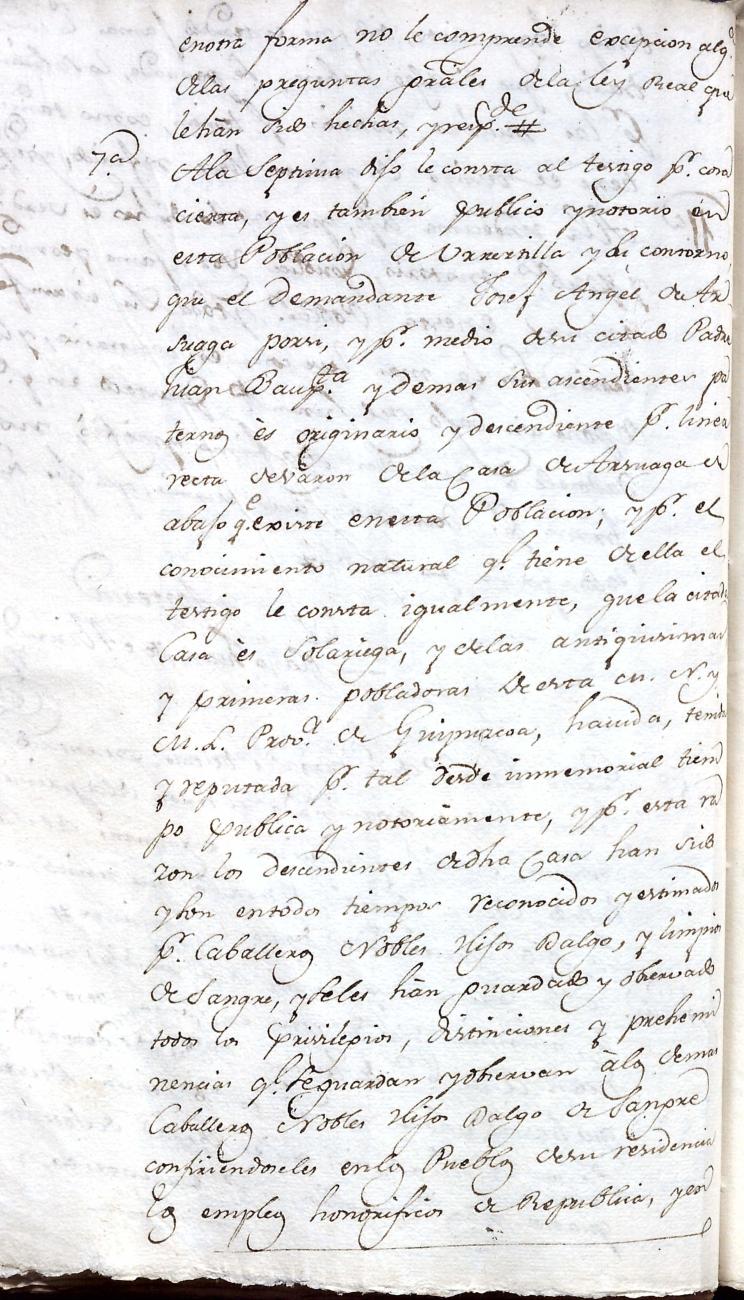 enotra forma no le comprende excepcion alg.ª
de las preguntas grãles de la ley Real que
le hãn sido hechas, y resp.de #
7.ª Ala Septima dijo le consta al testigo p.r cosa
cierta, y es tambien publico y notorio en
esta Poblacion de Urrestilla y su contorno,
que el Demandante Josef Angel de Ar
suaga por si, y p.r medio de su citado Padre
Juan Baup.ta y demas sus ascendientes pa
ternos ès originario y descendiente p.r linea
recta de varon de la Casa de Arsuaga de
abajo q.e existe en esta Poblacion; y p.r el
conocimiento natural q.e tiene de ella el
testigo le consta igualmente, que la citada
Casa ès Solariega, y de las antiquisimas
y primeras pobladoras de esta M. N. y
M. L. Prov.ª de Guipuzcoa, havida, tenida
y reputada p.r tal desde immemorial tiem
po publica y notoriamente, y p.r esta ra
zon los descendientes de dha Casa han sido
y son entodos tiempos reconocidos y estimados
p.r Caballeros Nobles Hijos Dalgo, y limpios
de Sangre, y seles hãn guardado y observado
todos los Privilegios, distinciones y prehemi
nencias q.e se guardan y observan à los demas
Caballeros Nobles Hijos Dalgo de Sangre
confiriendoseles en los Pueblos de su residencia
los empleos honorificos de Republica, y en